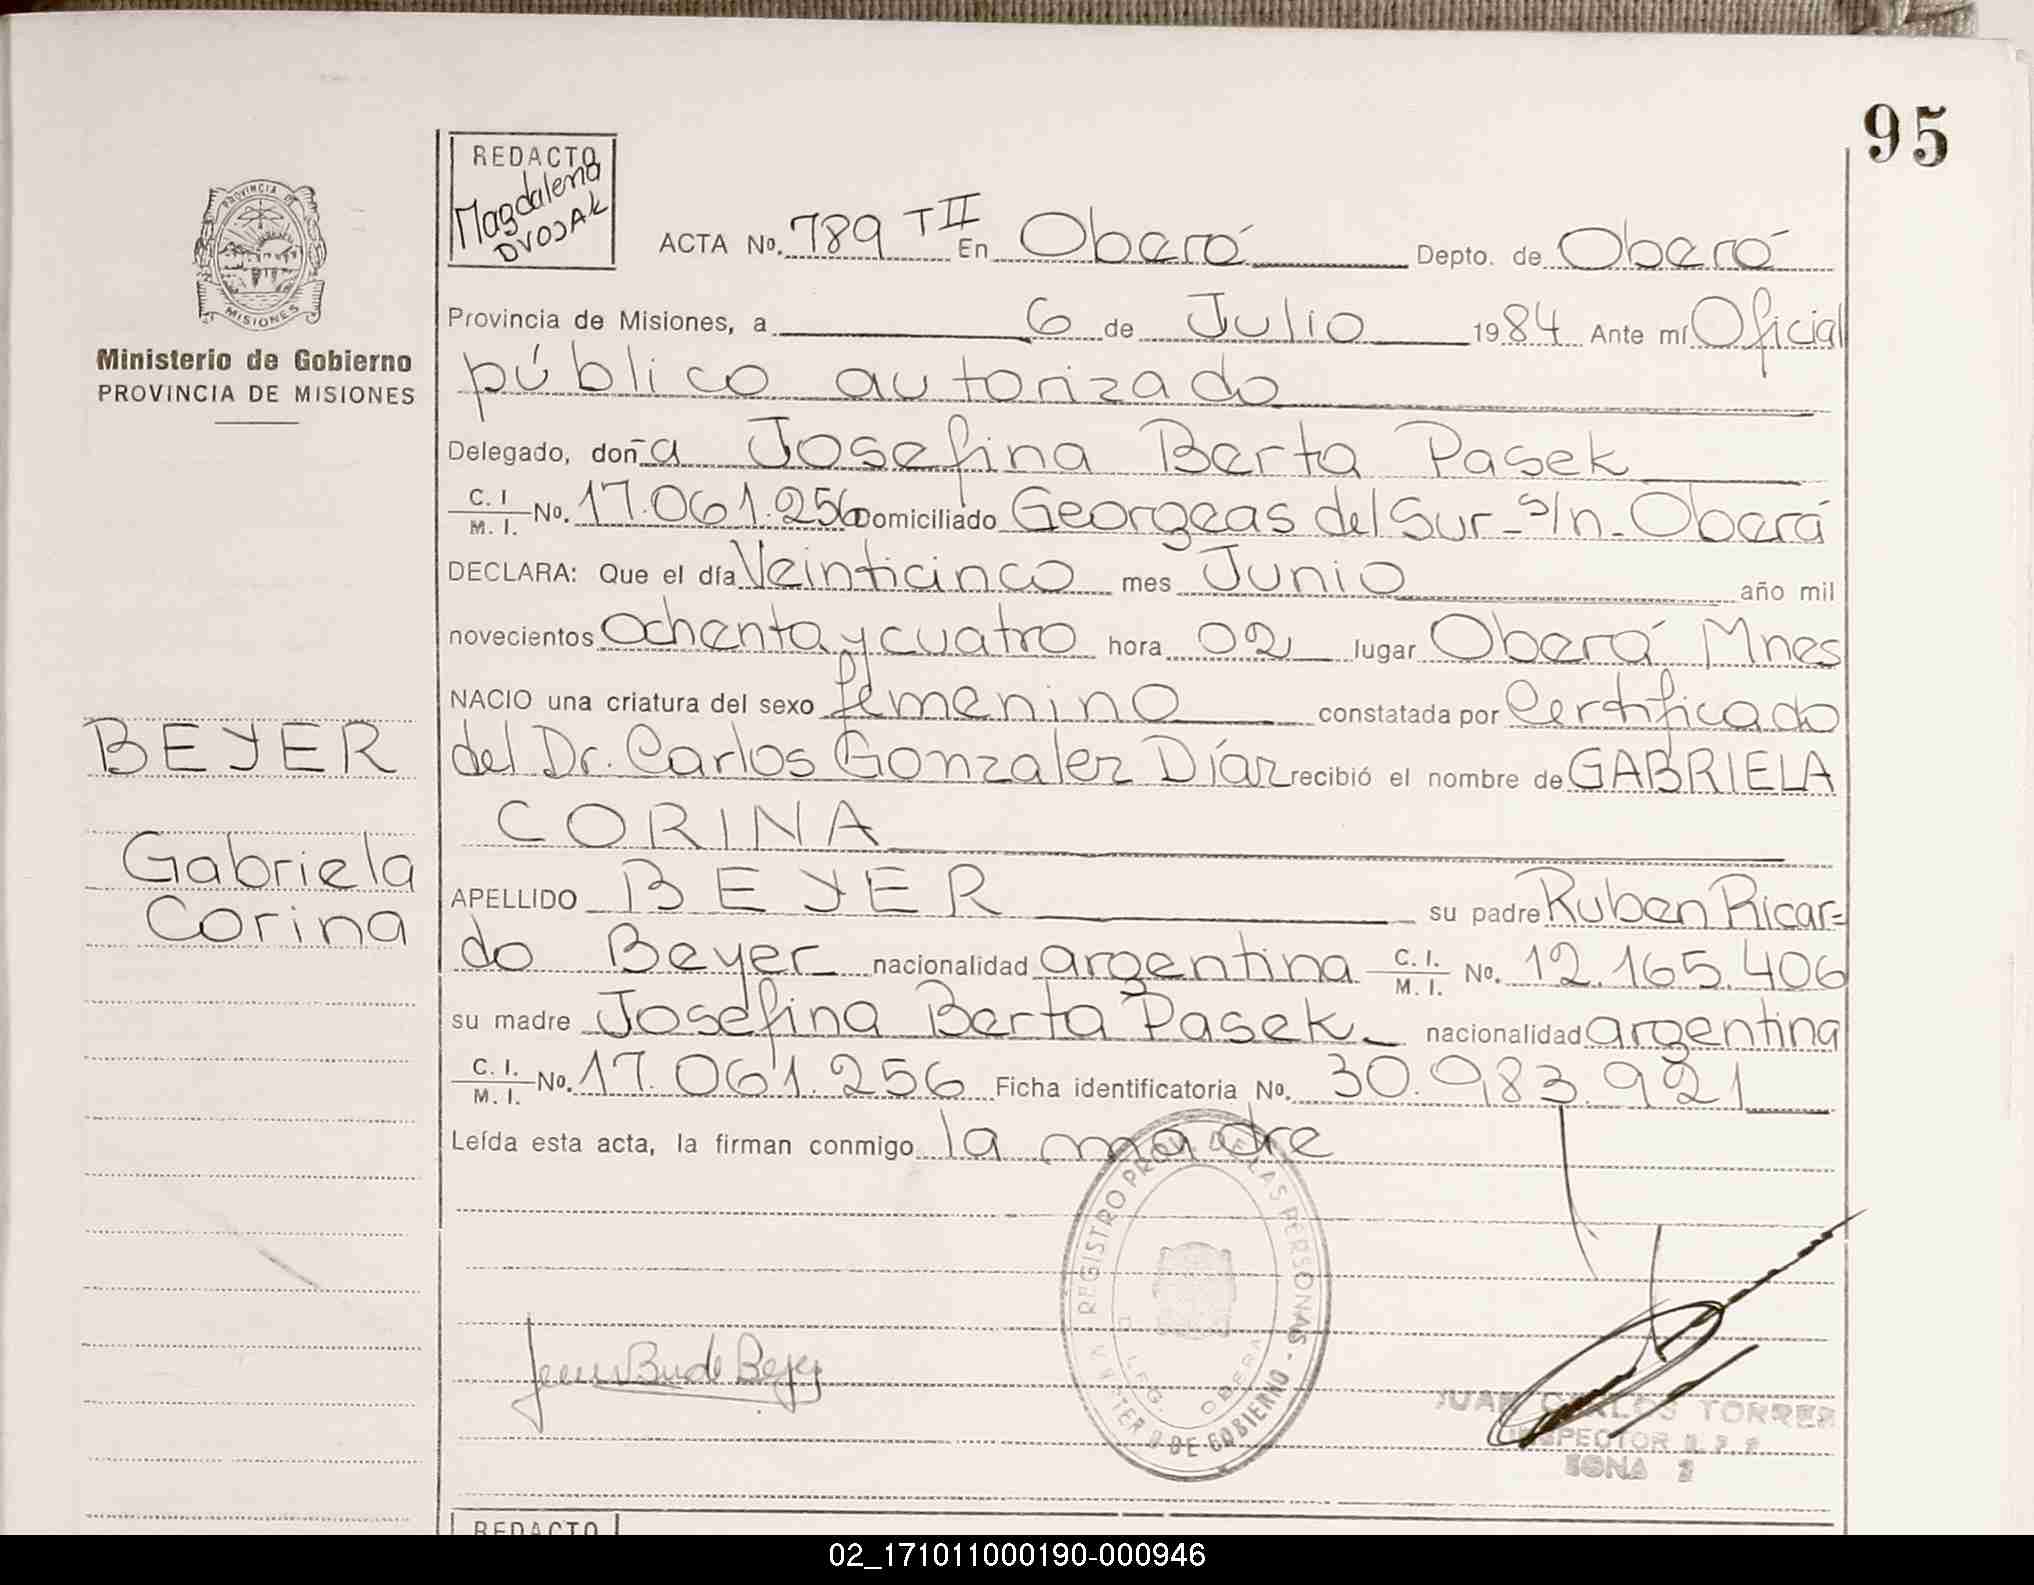 95
REDACTO
Magdalena
DVOJAK
ACTA No. 789 T II En Oberá Depto. de Oberá
PROVINCIA DE
MISIONES
Provincia de Misiones, a 6 de Julio 1984 Ante mí Oficial
Ministerio de Gobierno
PROVINCIA DE MISIONES
público autorizado
Delegado, doña Josefina Berta Pasek
C. I. M. I. No. 17.061.256 Domiciliado Georgeas del Sur - s/n - Oberá
DECLARA: Que el día Veinticinco mes Junio año mil
novecientos Ochenta y cuatro hora 02 lugar Oberá Mnes
NACIO una criatura del sexo femenino constatada por Certificado
BEYER
del Dr. Carlos Gonzalez Díaz recibió el nombre de GABRIELA
CORINA
Gabriela
Corina
APELLIDO BEYER su padre Ruben Ricar=
do Beyer nacionalidad argentina C. I. M. I. No. 12.165.406
su madre Josefina Berta Pasek nacionalidad argentina
C. I. M. I. No. 17.061.256 Ficha identificatoria No. 30.983.921
Leída esta acta, la firman conmigo la madre
REGISTRO PROV. DE LAS PERSONAS - MINISTERIO DE GOBIERNO
OBERA
de Beyer
JUAN CARLOS TORRES
INSPECTOR
ZONA 2
REDACTO
02_171011000190-000946